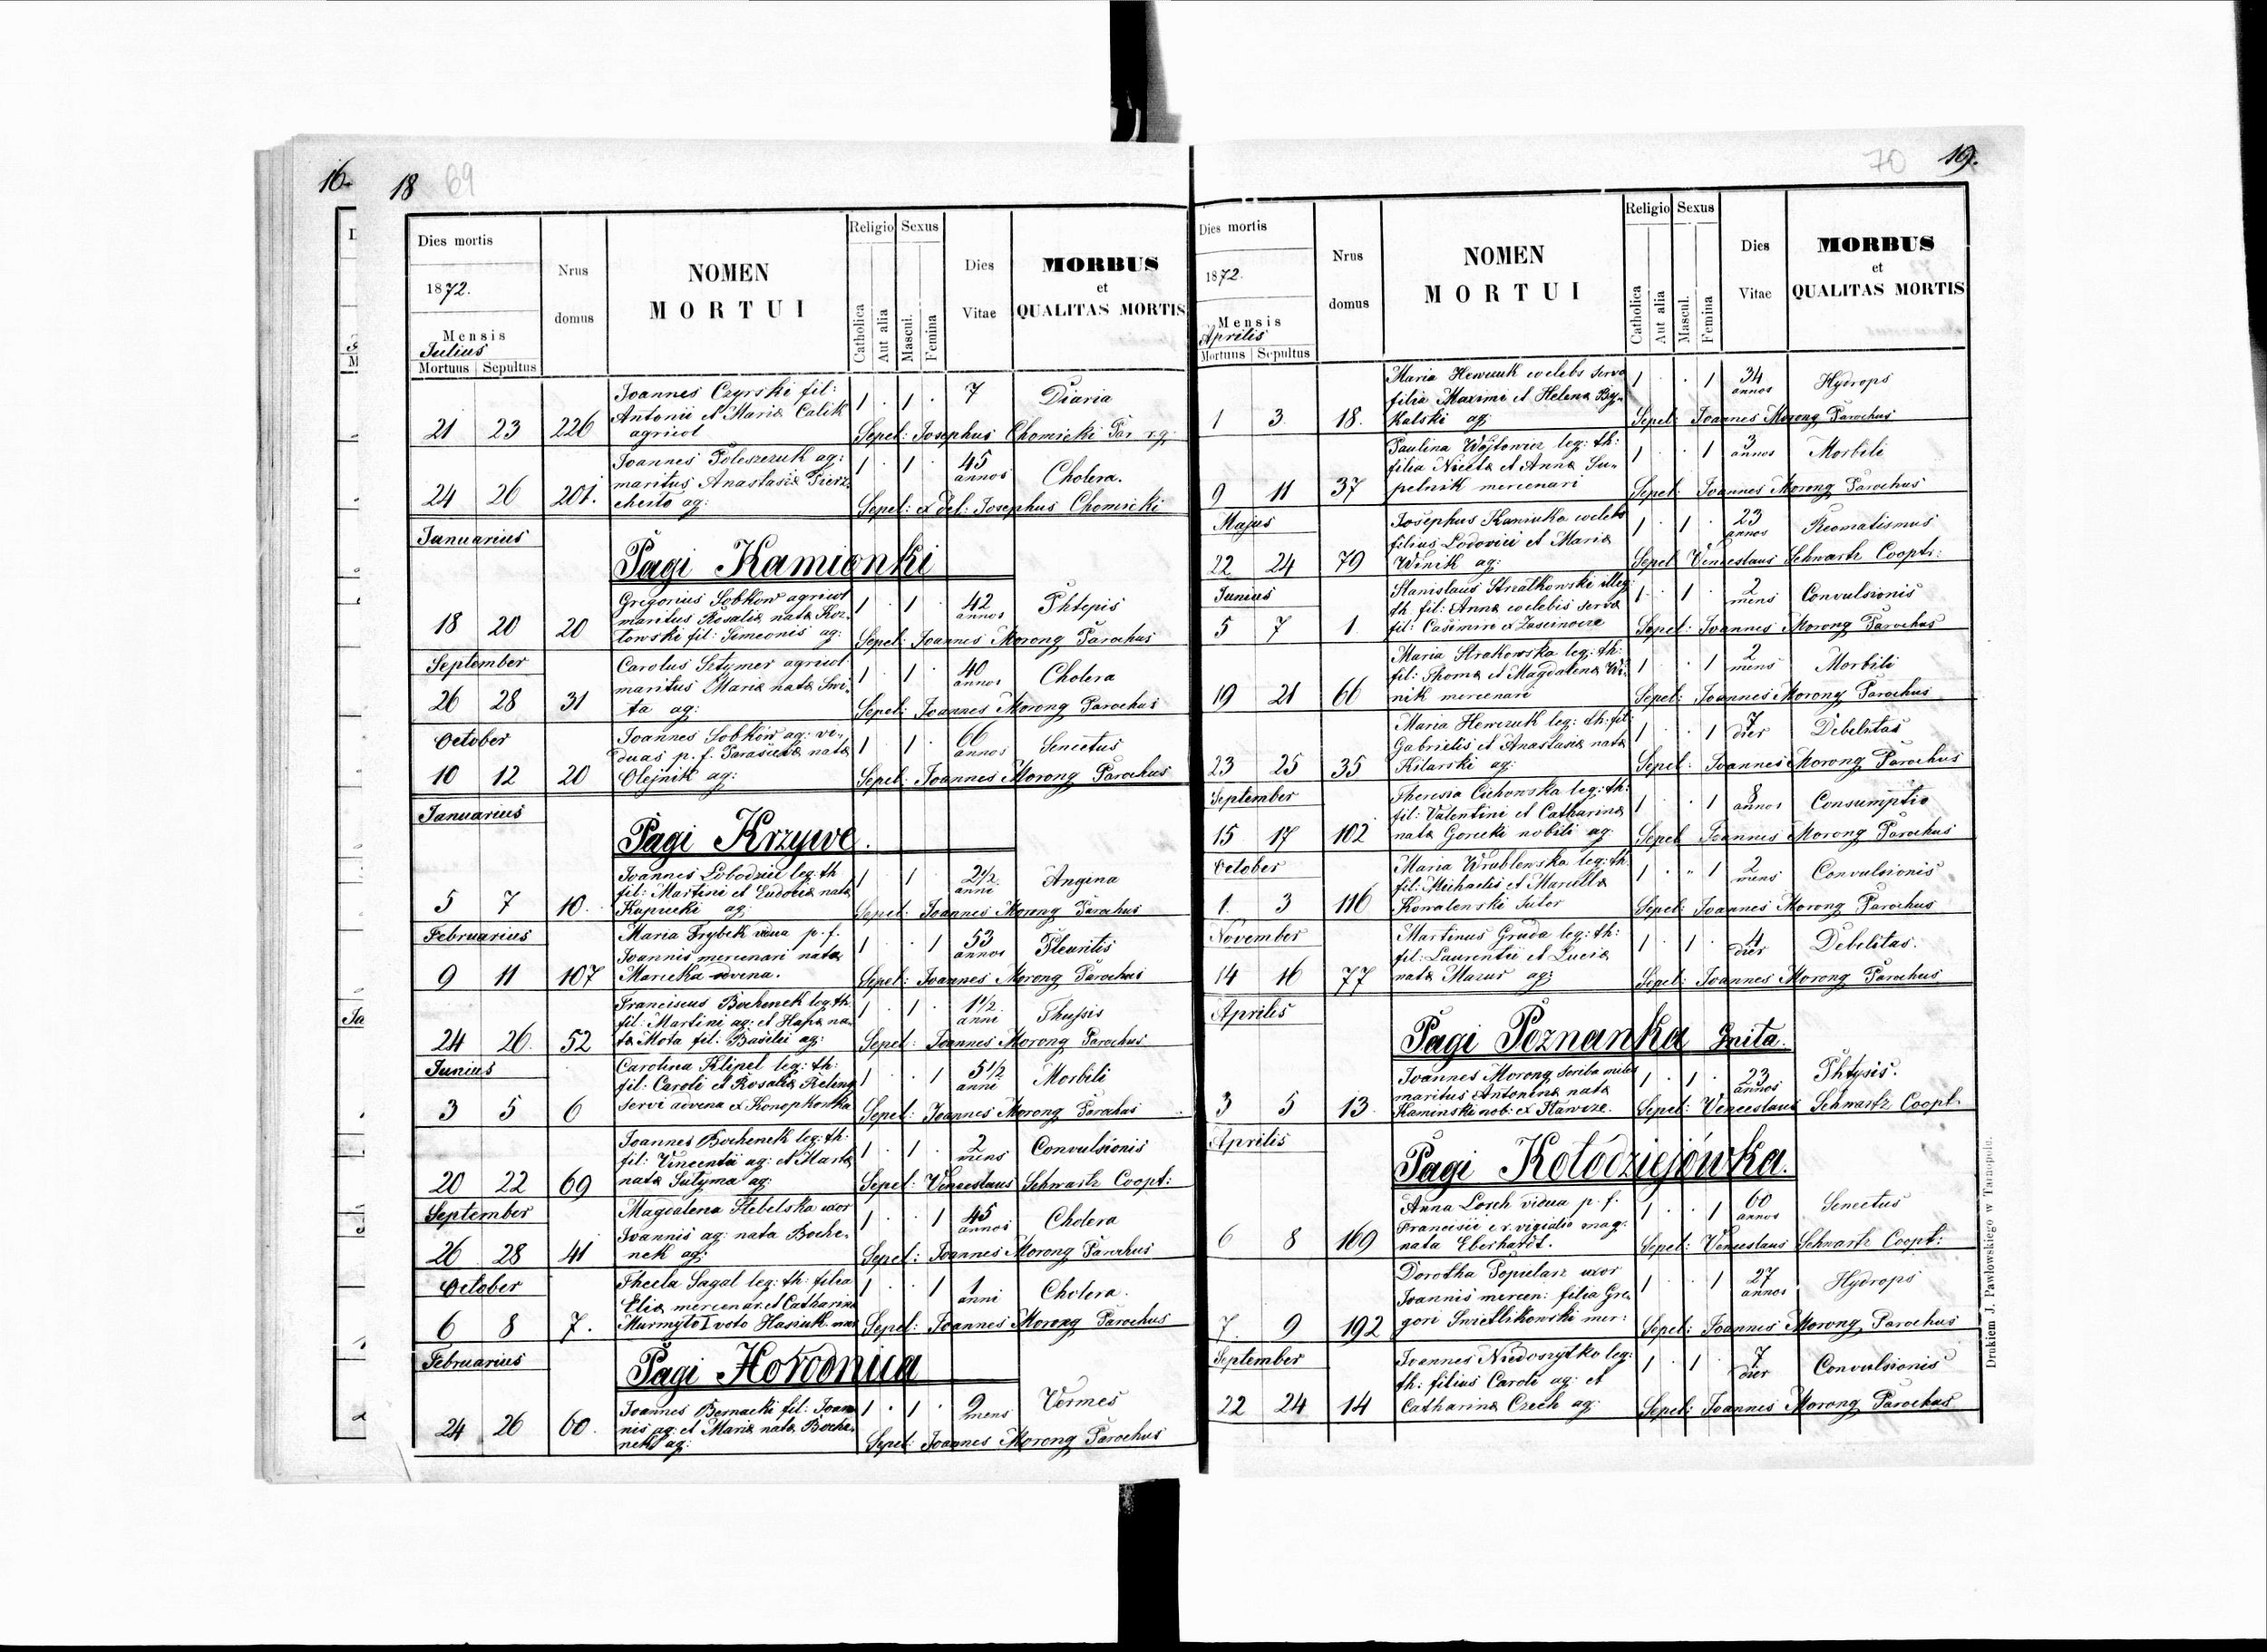 16.
18 69
Dies mortis
1872.
Mensis
Julius
Mortuus Sepultus
Nrus
domus
NOMEN
MORTUI
Religio
Catholica
Aut alia
Sexus
Mascul.
Femina
Dies
Vitae
MORBUS
et
QUALITAS MORTIS
Joannes Czyrski fil:
Antonii et Mariæ Calik
agricol
21 23 226 1 · 1 · 7 Diaria
Sepel: Josephus Chomicki Par r.g.
Joannes Poleszczuk ag:
maritus Anastasiæ Pierz
chała ag:
24 26 201. 1 · 1 · 45 annos Cholera.
Sepel: ex del: Josephus Chomicki
Januarius
Pagi Kamionki
Gregorius Sobkow agricol
maritus Rosaliæ natæ Koz
lowski fil: Simeonis ag:
18 20 20 1 · 1 · 42 annos Phtepis
Sepel: Joannes Morong Parochus
September
Carolus Sztymer agricol
maritus Mariæ natæ Swi„
ta ag:
26 28 31 1 · 1 · 40 annos Cholera
Sepel: Joannes Morong Parochus
October
Joannes Sobków ag: vi„
duas p. f. Parasiæ natæ
Olejnik ag:
10 12 20 1 · 1 · 66 annos Senectus
Sepel: Joannes Morong Parochus
Januarius
Pagi Krzywe.
Joannes Lobodziec leg: th
fil: Martini et Ludoviæ natæ
Kupiecki ag:
5 7 10. 1 · 1 · 2½ anni Angina
Sepel: Joannes Morong Parochus
Februarius
Maria Frybek vidua p. f.
Joannis mercenari natæ
Marecka advena.
9 11 107 1 · · 1 53 annos Pleuritis
Sepel: Joannes Morong Parochus
Franciscus Bochenek leg: th:
fil: Martini ag: et Hapæ na„
tæ Mota fil: Basilii ag:
24 26. 52 1 · 1 · 1½ anni Thussis
Sepel: Joannes Morong Parochus
Junius
Carolina Klipel leg: th:
fil: Caroli et Rosaliæ Reling
servi advena ex Konopkowka
3 5 6 1 · · 1 5½ anni Morbili
Sepel: Joannes Morong Parochus
Joannes Bochenek leg: th:
fil: Vincentii ag: et Martæ
natæ Sutyma ag:
20 22 69 1 · 1 · 2 mens Convulsionis
Sepel: Venceslaus Schwartz Coopt:
September
Magdalena Stebelska uxor
Joannis ag: nata Boche„
nek ag:
26 28 41 1 · · 1 45 annos Cholera
Sepel: Joannes Morong Parochus
October
Thecla Sagal leg: th: filia
Eliæ mercenar. et Catharinæ
Murmyło I voto Hasiuk mer
6 8 7. 1 · · 1 1 anni Cholera.
Sepel: Joannes Morong Parochus
Februarius
Pagi Horodnica
Joannes Bernacki fil: Joan
nis ag: et Mariæ natæ Boche„
nek ag:
24 26 60. 1 · 1 · 9 mens Vermes
Sepel: Joannes Morong Parochus
70 19.
Dies mortis
1872.
Mensis
Aprilis
Mortuus Sepultus
Nrus
domus
NOMEN
MORTUI
Religio
Catholica
Aut alia
Sexus
Mascul.
Femina
Dies
Vitae
MORBUS
et
QUALITAS MORTIS
Maria Hewczuk cœlebs serva
filia Maximi et Helenæ By„
kalski ag:
1 3 18. 1 · · 1 34 annos Hydrops
Sepel: Joannes Morong Parochus
Paulina Wojtowicz leg: th:
filia Nicetæ et Annæ Su„
pelnik mercenari
9 11 37 1 · · 1 3 annos Morbili
Sepel: Joannes Morong Parochus
Majus
Josephus Kaniuka cœlebs
filius Lodovici et Mariæ
Winik ag:
22 24 79 1 · 1 · 23 annos Reomatismus
Sepel Venceslaus Schwartz Cooptr:
Junius
Stanislaus Strzalkowski illeg:
th. fil: Annæ cœlebis servæ
fil: Casimiri ex Zascinocze
5 7 1. 1 · 1 · 2 mens Convulsionis
Sepel: Joannes Morong Parochus
Maria Strakowska leg: th:
fil: Thomæ et Magdalenæ Wi„
nik mercenari
19 21 66 1 · · 1 2 mens Morbili
Sepel: Joannes Morong Parochus
Maria Hewczuk leg: th: fil:
Gabrielis et Anastasiæ natæ
Kilarski ag:
23 25 35 1 · · 1 7 dier Debelitas
Sepel: Joannes Morong Parochus
September
Theresia Cichowska leg: th:
fil: Valentini et Catharinæ
natæ Gorecki nobili ag:
15 17 102 1 · · 1 8 annos Consumptio
Sepel Joannes Morong Parochus
October
Maria Wrublewska leg: th.
fil: Michaelis et Marcellæ
Kowalewski Sutor
1. 3 116 1 · „ 1 2 mens Convulsionis
Sepel: Joannes Morong Parochus
November
Martinus Gruda leg: th:
fil: Laurentii et Luciæ
natæ Mazur ag:
14 16 77 1 · 1 · 4 dier Debelitas.
Sepel: Joannes Morong Parochus
Aprilis
Pagi Poznanka Gnita.
Joannes Morong scriba miles
maritus Antoninæ natæ
Kaminski nob: ex
3 5 13. 1 · 1 · 23 annos Phtysis.
Sepel: Venceslaus Schwartz Coopt.
Aprilis
Pagi Kołodziejówka.
Anna Lorch vidua p. f.
Francisii c. r. mag:
nata Eberhardt.
6 8 169 1 · · 1 60 annos Senectus
Sepel: Venceslaus Schwartz Coopt:
Dorotha Popielarz uxor
Joannis mercen: filia Gre„
gori Swietlikowski mer:
7. 9 192 1 · · 1 27 annos Hydrops
Sepel: Joannes Morong Parochus
September
Joannes Niedoszytko leg:
th: filius Caroli ag: et
Catharinæ Czech ag:
22 24 14 1 · 1 · 7 dier Convulsionis
Sepel: Joannes Morong Parochus
Drukiem J. Pawłowskiego w Tarnopolu.